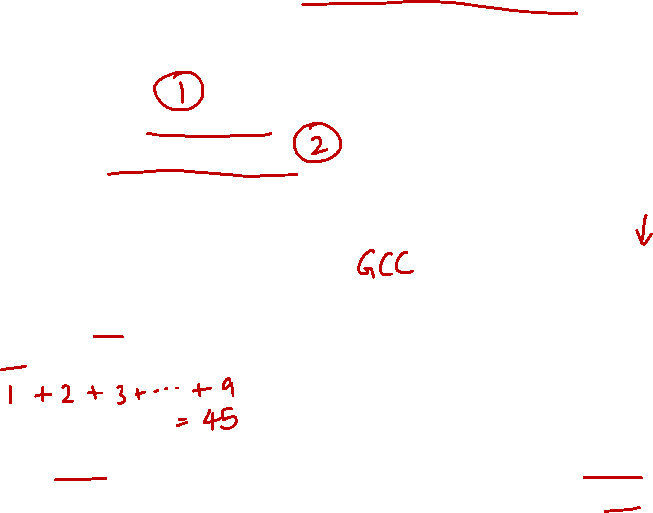 ①
②
GCC
1 + 2 + 3 + ... + 9
= 45